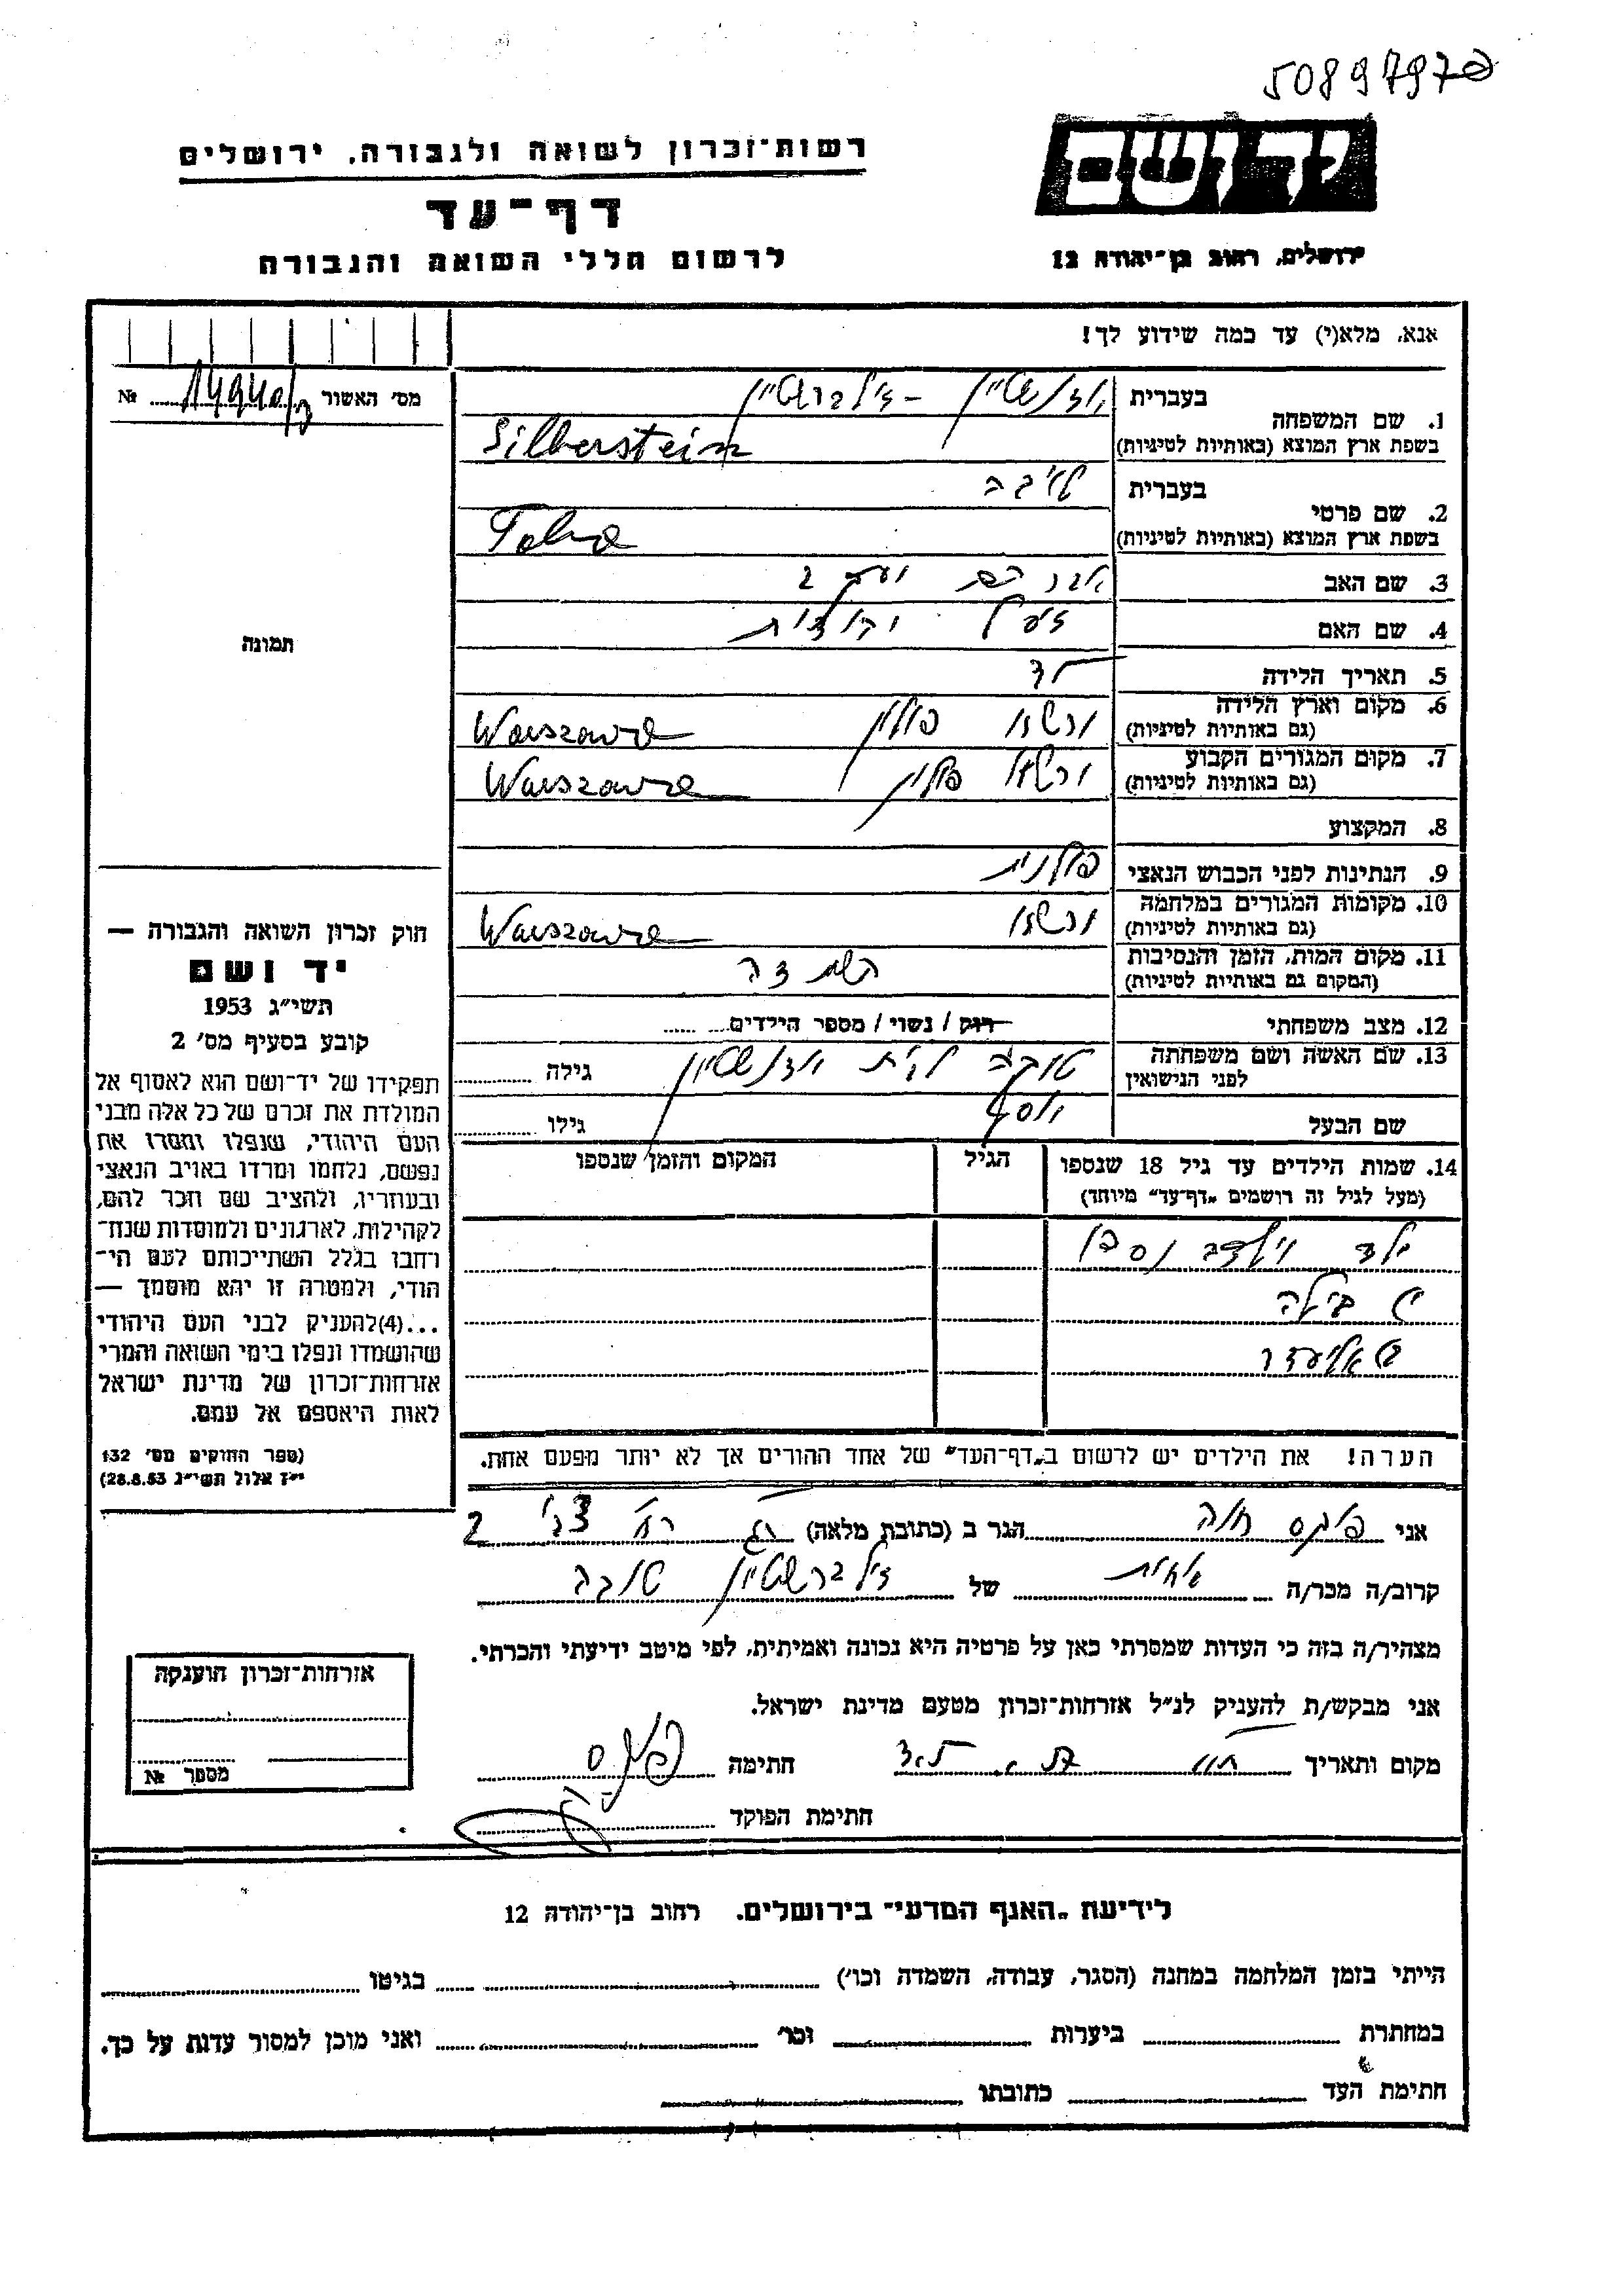 50897970
יד ושם
ירושלים, רחוב בן־יהודה 12
רשות־זכרון לשואה ולגבורה, ירושלים
דף־עד
לרשום חללי השואה והגבורה
אנא, מלא(י) עד כמה שידוע לך!
מס׳ האשור № 
תמונה
חוק זכרון השואה והגבורה —
יד ושם
תשי״ג 1953
קובע בסעיף מס׳ 2
תפקידו של יד־ושם הוא לאסוף אל
המולדת את זכרם של כל אלה מבני
העם היהודי, שנפלו ומסרו את
נפשם, נלחמו ומרדו באויב הנאצי
ובעוזריו, ולהציב שם וזכר להם,
לקהילות, לארגונים ולמוסדות שנח־
רחבו בגלל השתייכותם לעם הי־
הודי, ולמטרה זו יהא מוסמך —
...(4)להעניק לבני העם היהודי
שהושמדו ונפלו בימי השואה והמרי
אזרחות־זכרון של מדינת ישראל
לאות היאספם אל עמם.
(ספר החוקים מס׳ 132
י״ז אלול תשי״ג 28.8.53)
1. שם המשפחה בעברית זילברשטיין
בשפת ארץ המוצא (באותיות לטיניות) Silberstein
2. שם פרטי בעברית טובה
בשפת ארץ המוצא (באותיות לטיניות)
3. שם האב אברהם
4. שם האם
5. תאריך הלידה
6. מקום וארץ הלידה ורשא פולין Warszawa
(גם באותיות לטיניות)
7. מקום המגורים הקבוע ורשא פולין Warszawa
(גם באותיות לטיניות)
8. המקצוע
9. הנתינות לפני הכבוש הנאצי פולנית
10. מקומות המגורים במלחמה ורשא Warszawa
(גם באותיות לטיניות)
11. מקום המות, הזמן והנסיבות השמדה
(המקום גם באותיות לטיניות)
12. מצב משפחתי רווק / נשוי / מספר הילדים
13. שם האשה ושם משפחתה טובה לבית גילה
לפני הנישואין
שם הבעל יוסף גילו
14. שמות הילדים עד גיל 18 שנספו הגיל המקום והזמן שנספו
(מעל לגיל זה רושמים „דף־עד״ מיוחד)
אליעזר
הערה! את הילדים יש לרשום ב„דף־העד״ של אחד ההורים אך לא יותר מפעם אחת.
אני פינקס חוה הגר ב (כתובת מלאה) 2
קרוב/ה מכר/ה אחות של זילברשטיין טובה
מצהיר/ה בזה כי העדות שמסרתי כאן על פרטיה היא נכונה ואמיתית, לפי מיטב ידיעתי והכרתי.
אני מבקש/ת להעניק לנ״ל אזרחות־זכרון מטעם מדינת ישראל.
מקום ותאריך חתימה פינקס
חתימת הפוקד
אזרחות־זכרון הוענקה
מספר №
לידיעת „האגף המדעי״ בירושלים. רחוב בן־יהודה 12
הייתי בזמן המלחמה במחנה (הסגר, עבודה, השמדה וכו׳) בגיטו
במחתרת ביערות וכו׳ ואני מוכן למסור עדות על כך.
חתימת העד כתובתו